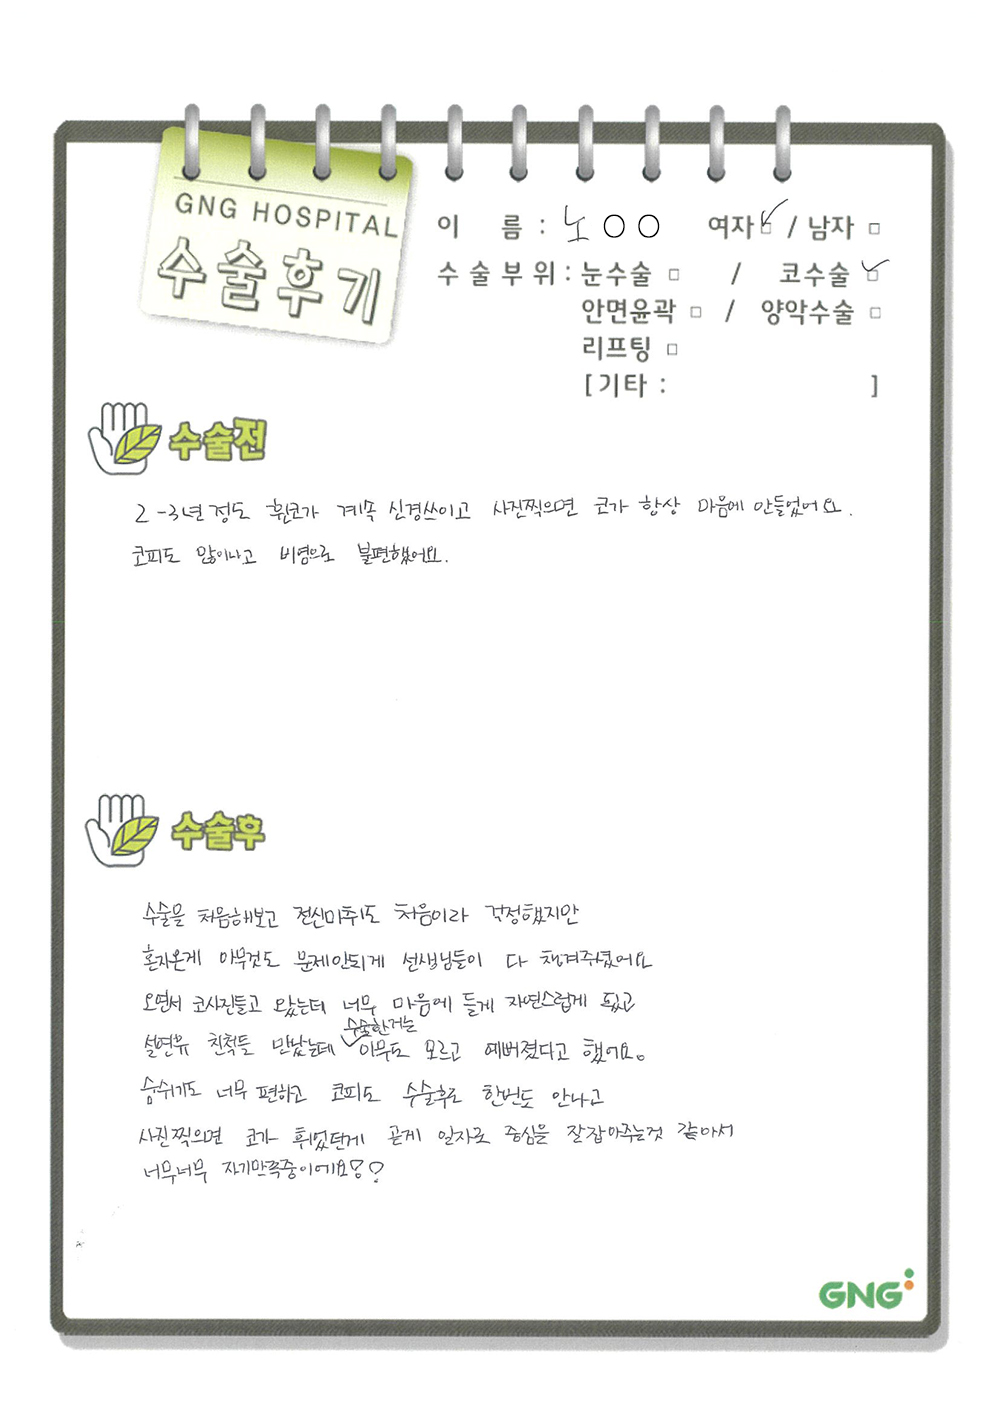 GNG HOSPITAL
수술후기
이 름 : 노○○ 여자 ☑ / 남자 □
수술부위 : 눈수술 □ / 코수술 ☑
안면윤곽 □ / 양악수술 □
리프팅 □
[기타 : ]
수술전
2-3년정도 휜코가 계속 신경쓰이고 사진찍으면 코가 항상 마음에 안들었어요.
코피도 많이나고 비염으로 불편했어요.
수술후
수술을 처음해보고 전신마취도 처음이라 걱정했지만
혼자온게 아무것도 문제안되게 선생님들이 다 챙겨주셨어요
오면서 코사진들고 왔는데 너무 마음에 들게 자연스럽게 됬고
설연휴 친척들 만났는데 수술한거는 아무도 모르고 예뻐졌다고 했어요.
숨쉬기도 너무 편하고 코피도 수술후로 한번도 안나고
사진찍으면 코가 휘었던게 곧게 일자로 중심을 잘잡아주는것 같아서
너무너무 자기만족중이에요??
GNG